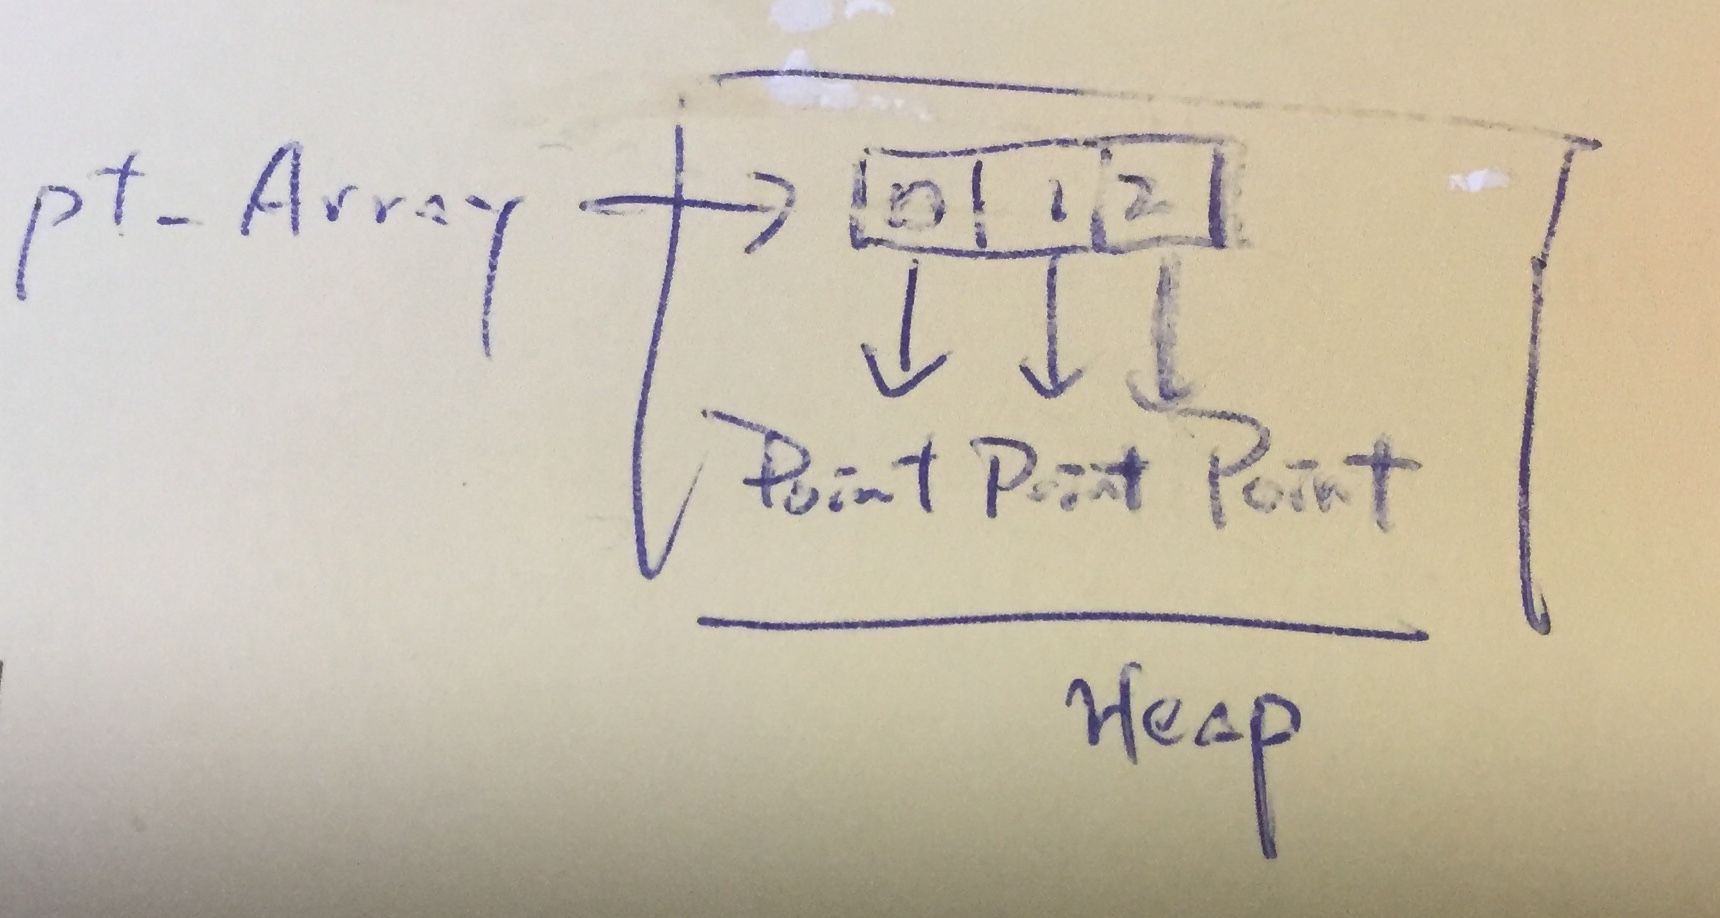 pt_Array → 0 1 2
Point Point Point
Heap